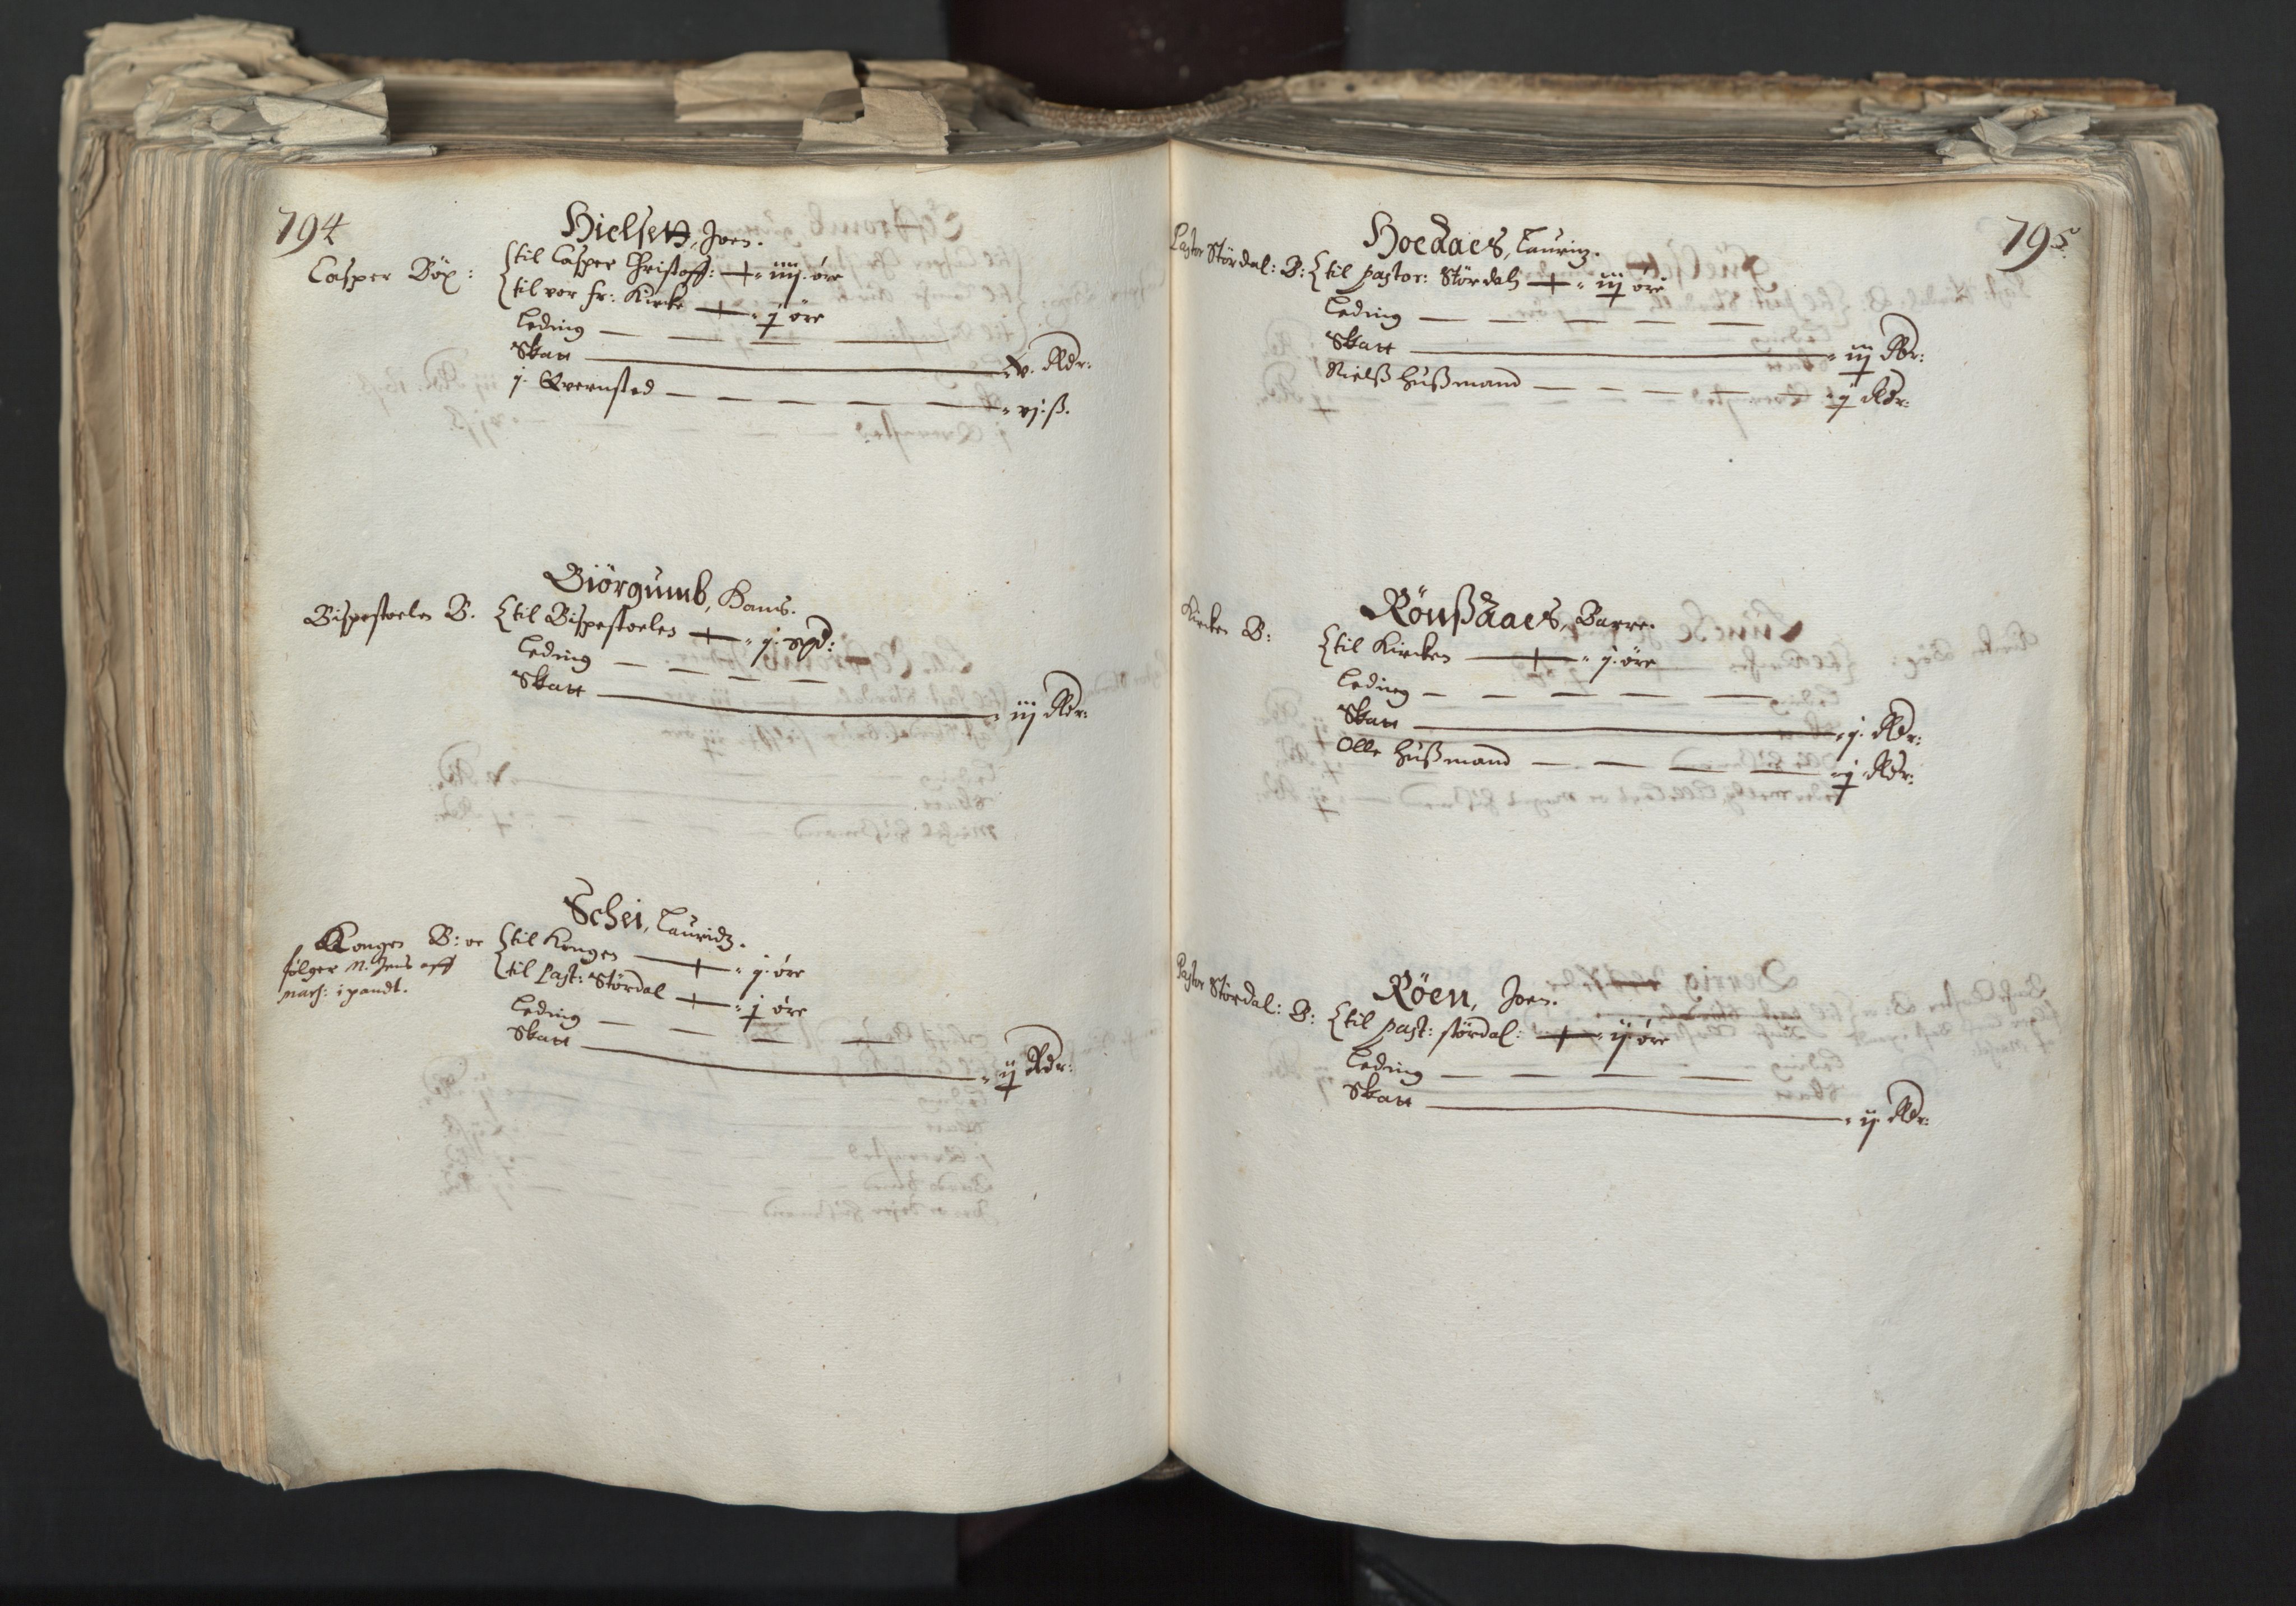 794
Hielsett, Joen.
Casper Böx: til Casper Christoff: — iiij. öre
til vor fr: Kircke — j öre
Leding
Skatt — v. Rdr:
j. Qvernsted — vj. ß.
Giörgumb, Hans.
Bispestoelen B. til Bispestoelen — j. spd:
Leding
Skatt — iij Rdr:
Schei, Lauridz.
Kongen B: oc til Kongen — j. öre
følger M. Jens aff
nars: i pandt. til Past: Stördal — j öre
Leding
Skatt — ij Rdr:
795
Hoeaaes, Lauritz.
Pastor Stördal: B: til pastor: Stördals — iij öre
Leding
Skatt — iij Rdr:
Nielß Hußmand — j Rdr:
Rönßaaes, Baare.
Kircken B: til Kircken — j. öre
Leding
Skatt — j. Rdr:
Olle Hußmand — j Rdr:
Röen, Joen.
Pastor Stördal: B: til past: stördal: — ij. öre
Leding
Skatt — ij. Rdr: